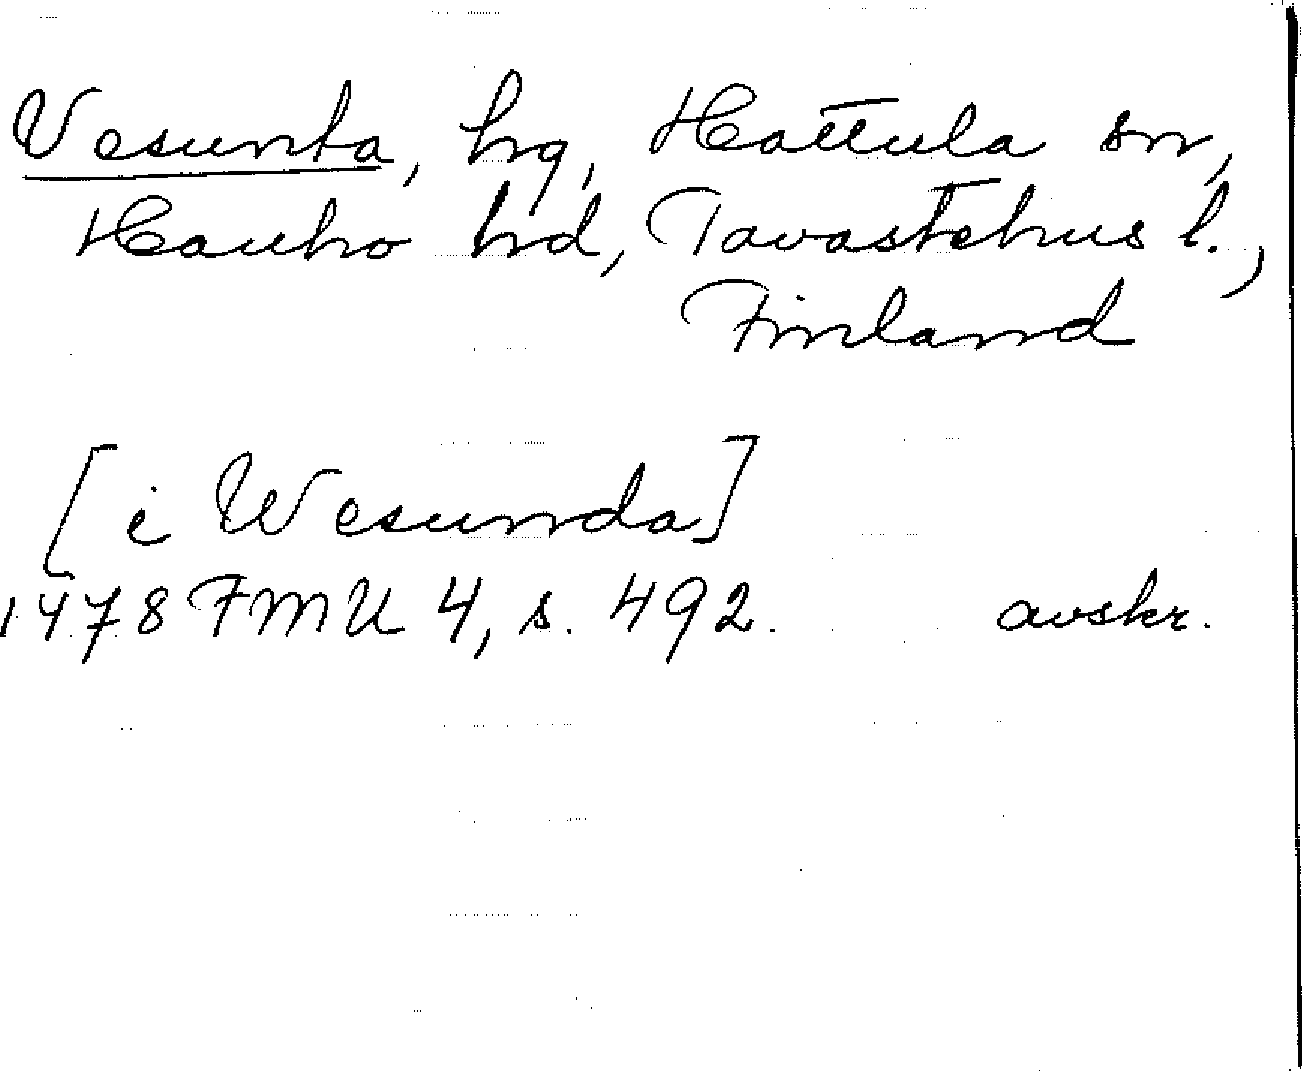 Vesunta, hg, Hattula sn,
Hauho hd, Tavastehus l.,
Finland
[i Wesunda]
1478 FMU 4, s. 492. avskr.